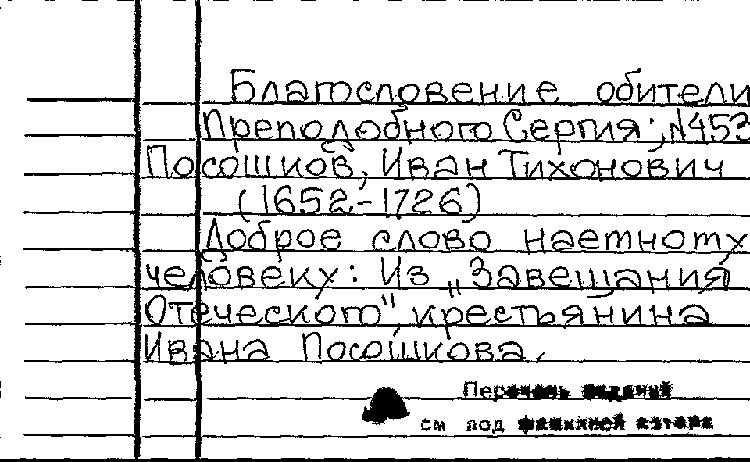 Благословение обители
Преподобного Сергия; N453
Посошков, Иван Тихонович
(1652-1726)
Доброе слово наетноту
человеку: Из „Завещания
Отеческого", крестьянина
Ивана Посошкова.
Перечень изданий
см под фамилией автора